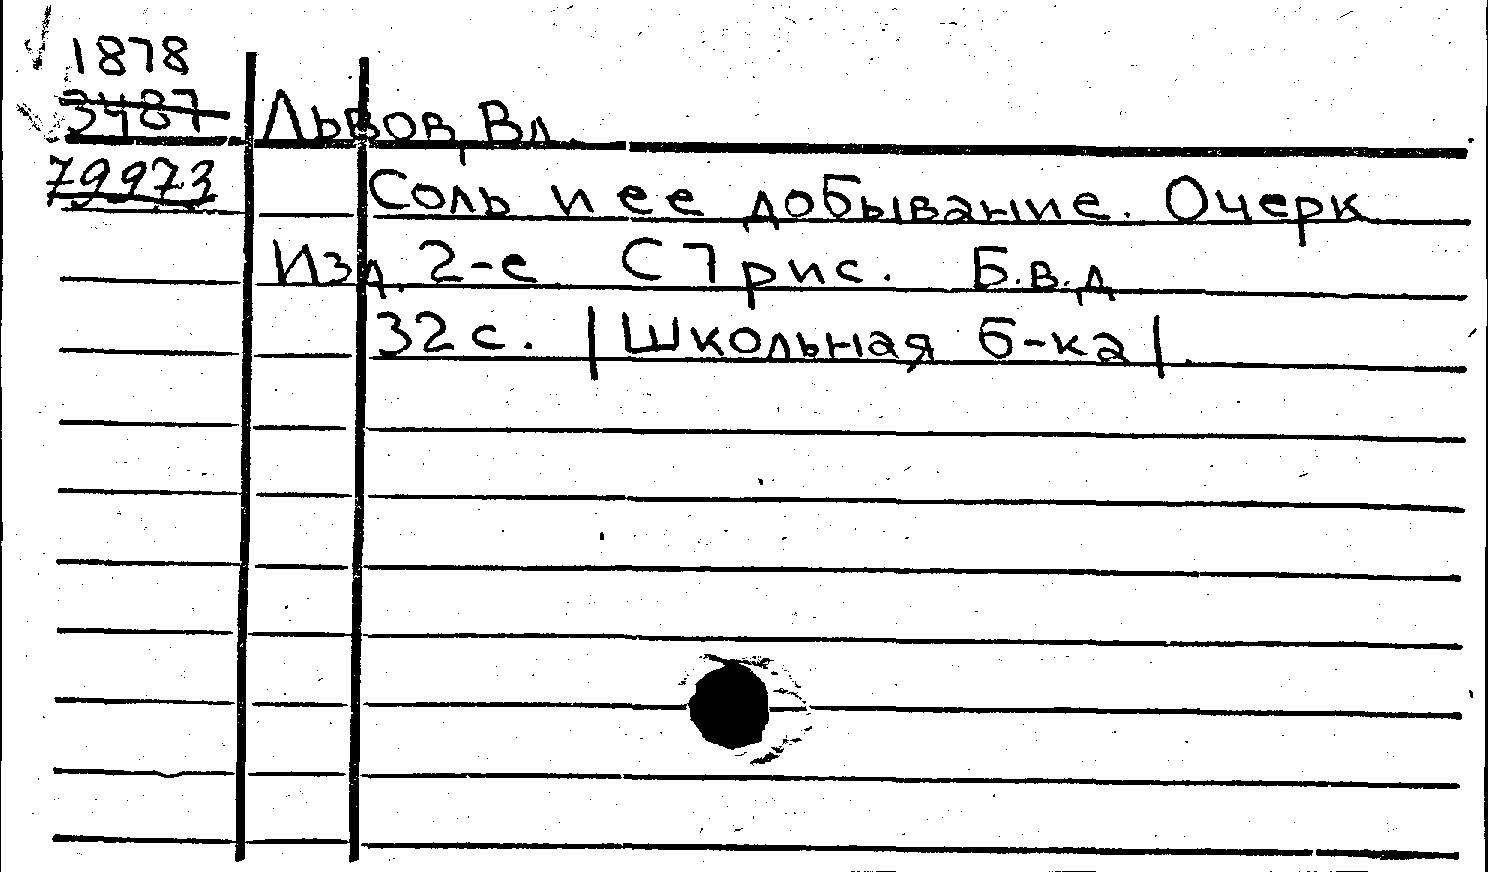 1878
3487
Львов, Вл.
79973
Соль и ее добывание. Очерк
Изд. 2-е С 7 рис. Б.в.д
32 с. | Школьная б-ка |